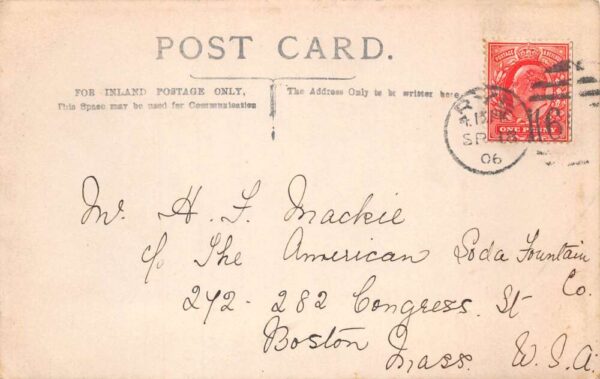 POST CARD.
FOR INLAND POSTAGE ONLY,
This Space may be used for Communication
The Address Only to be written here
POSTAGE
ONE PENNY
4.15 PM
SP 18
06
Mr. H. F. Mackie
c/o The American Soda Fountain
Co.
242-282 Congress. St
Boston
Mass. U.S.A.